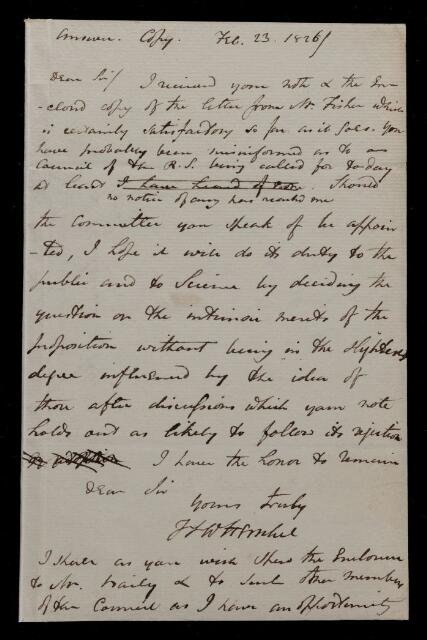 Answer. Copy. Feb. 23. 1826
Dear Sir I received your note & the En-
-closed copy of the letter from Mr. Fisher which
is certainly satisfactory so far as it goes. You
have probably been misinformed as to a
Council of the R.S. being called for to-day
at least I have heard of none. Should
no notice of any has reached me
the Committee you speak of be appoin
-ted, I hope it will do its duty to the
public and to Science by deciding the
question on the intrinsic merits of the
proposition without being in the slightest
degree influenced by the idea of
those after discussions which your note
holds out as likely to follow its rejection
or adoption I have the honor to remain
Dear Sir
Yours truly
J F W Herschel
I shall as you wish shew the Enclosure
to Mr. Baily & to such other members
of the Council as I have an opportunity